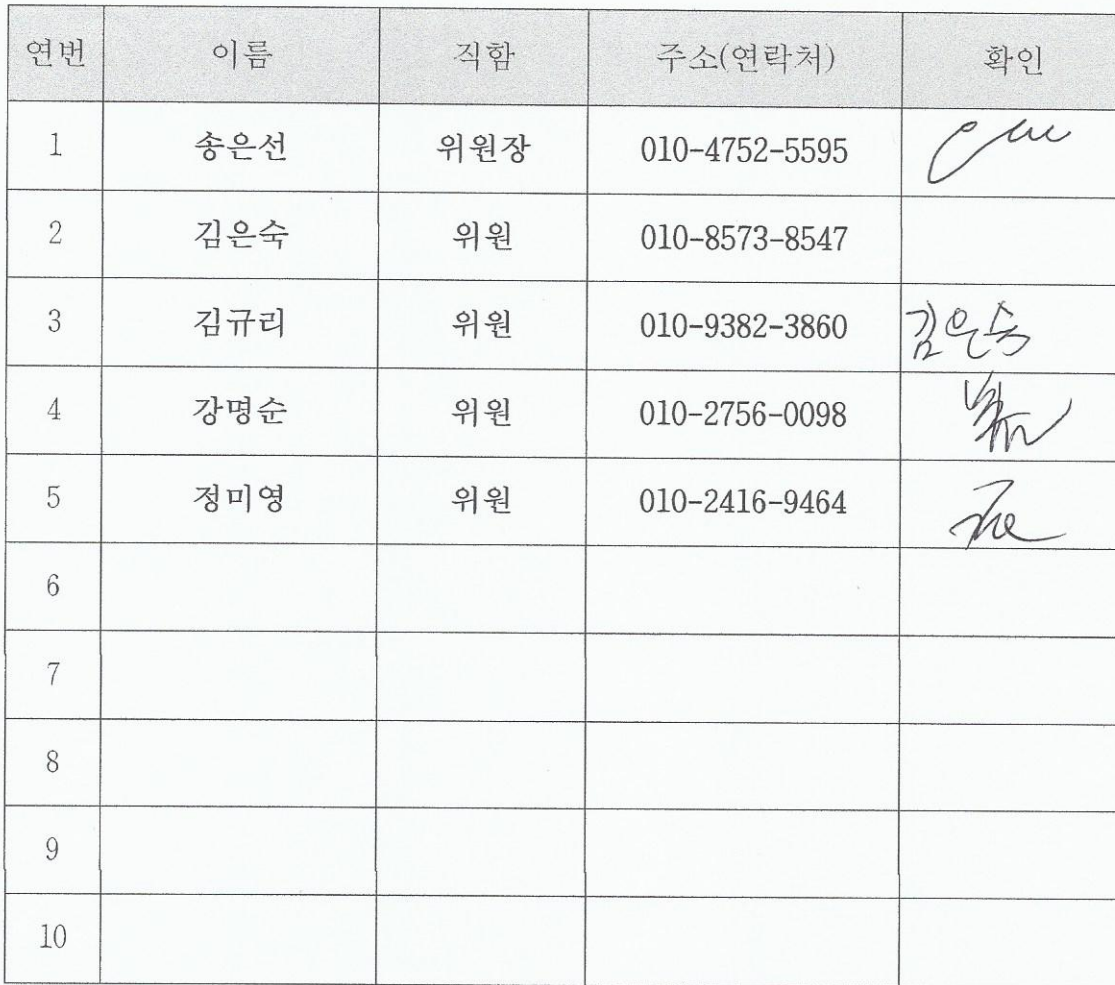 연번 이름 직함 주소(연락처) 확인
1 송은선 위원장 010-4752-5595
2 김은숙 위원 010-8573-8547
3 김규리 위원 010-9382-3860 김은숙
4 강명순 위원 010-2756-0098
5 정미영 위원 010-2416-9464
6
7
8
9
10